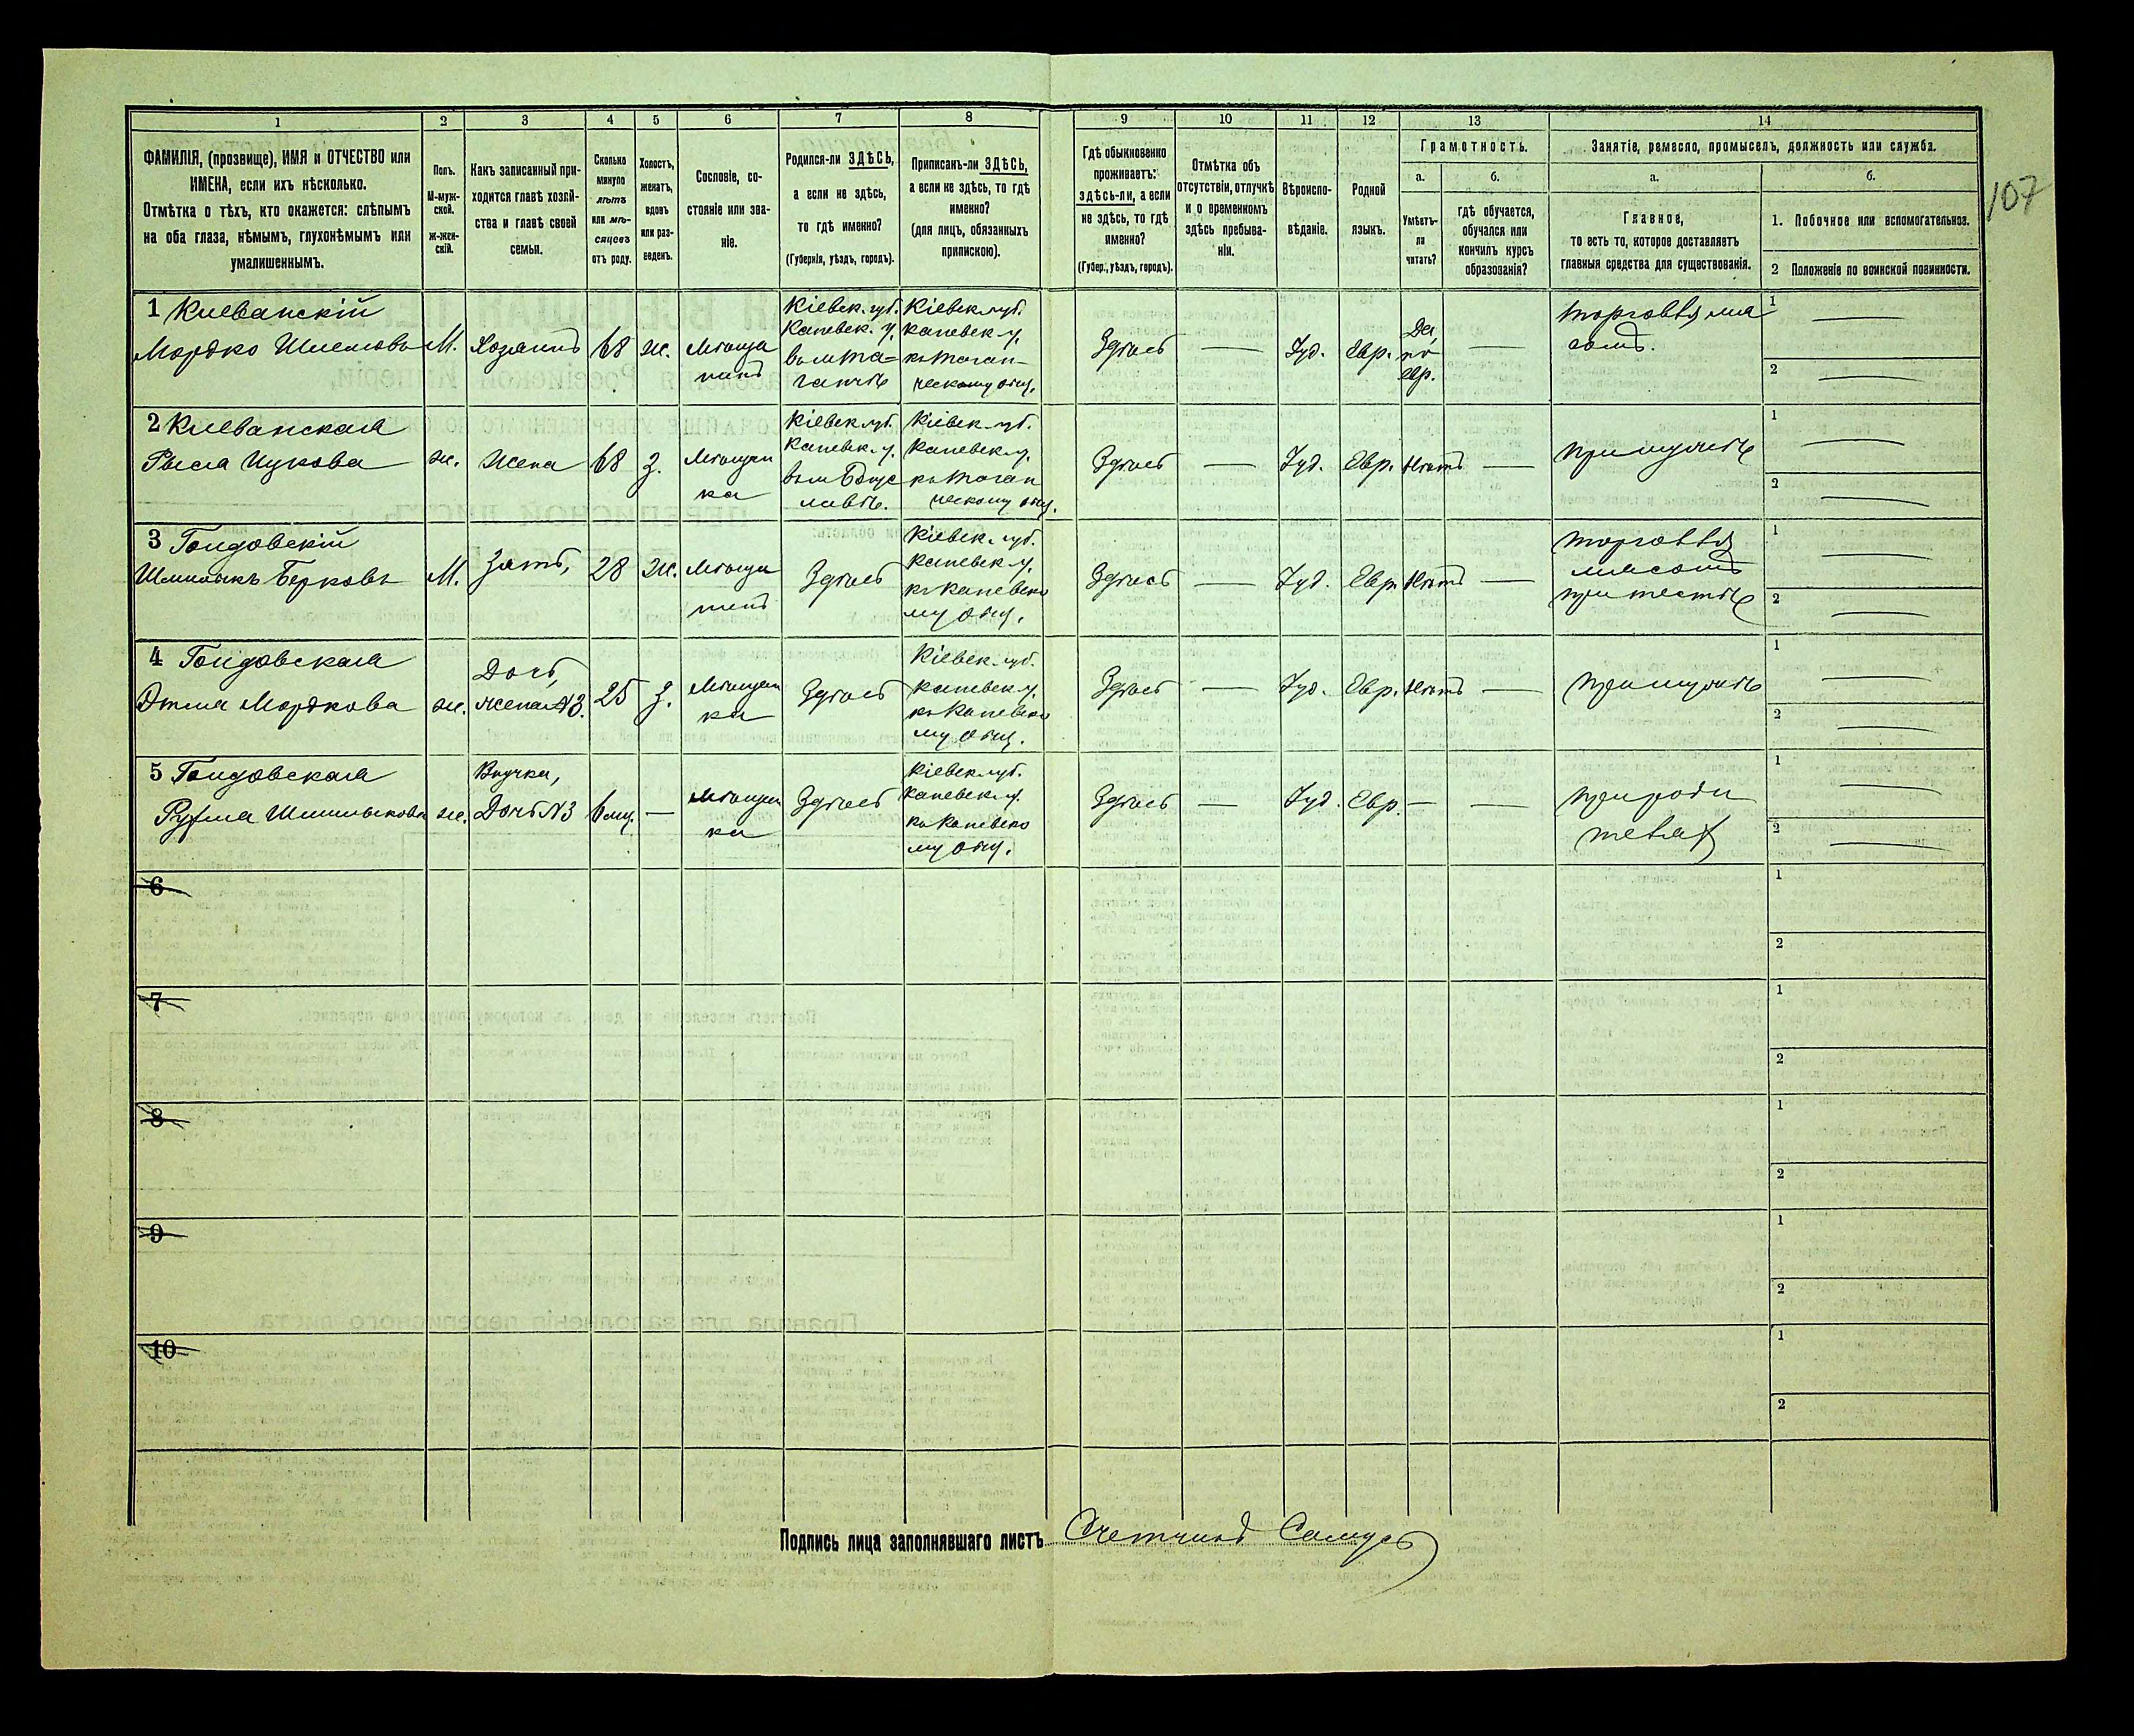 1 2 3 4 5 6 7 8 9 10 11 12 13 14
ФАМИЛІЯ, (прозвище), ИМЯ и ОТЧЕСТВО или
ИМЕНА, если ихъ нѣсколько.
Отмѣтка о тѣхъ, кто окажется: слѣпымъ
на оба глаза, нѣмымъ, глухонѣмымъ или
умалишеннымъ.
Полъ.
М-муж-
ской.
ж-жен-
скій.
Какъ записанный при-
ходится главѣ хозяй-
ства и главѣ своей
семьи.
Сколько
минуло
лѣтъ
или мѣ-
сяцевъ
отъ роду.
Холостъ,
женатъ,
вдовъ
или раз-
веденъ.
Сословіе, со-
стояніе или зва-
ніе.
Родился-ли ЗДѢСЬ,
а если не здѣсь,
то гдѣ именно?
(Губернія, уѣздъ, городъ).
Приписанъ-ли ЗДѢСЬ,
а если не здѣсь, то гдѣ
именно?
(для лицъ, обязанныхъ
припискою).
Гдѣ обыкновенно
проживаетъ:
здѣсь-ли, а если
не здѣсь, то гдѣ
именно?
(Губер., уѣздъ, городъ).
Отмѣтка объ
отсутствіи, отлучкѣ
и о временномъ
здѣсь пребыва-
ніи.
Вѣроиспо-
вѣданіе.
Родной
языкъ.
Грамотность.
а.
Умѣетъ-
ли
читать?
б.
гдѣ обучается,
обучался или
кончилъ курсъ
образованія?
Занятіе, ремесло, промыселъ, должность или служба.
а.
Главное,
то есть то, которое доставляетъ
главныя средства для существованія.
б.
1. Побочное или вспомогательное.
2 Положеніе по воинской повинности.
107
1
Мордко
М.
Хозяинъ
68
ж.
Мѣща
нинъ
Кіевск. губ.
Каневск. у.
Кіевск. губ.
Каневск. у.
Здѣсь
Іуд.
Евр.
Да,
по
евр.
торговля мя
сомъ.
1
2
2
ж.
Жена
68
З.
Мѣщан
ка
Кіевск. губ.
Каневск. у.
Кіевск. губ.
Каневск. у.
Здѣсь
Іуд.
Евр.
Нѣтъ
при мужѣ
1
2
3
Берковъ
М.
Зять,
28
ж.
Мѣща
нинъ
Здѣсь
Кіевск. губ.
Каневск. у.
къ Каневско
му общ.
Здѣсь
Іуд.
Евр.
Нѣтъ
торговля
мясомъ
при тестѣ
1
2
4
Мордкова
ж.
Дочь,
жена №3.
25
З.
Мѣщан
ка
Здѣсь
Кіевск. губ.
Каневск. у.
къ Каневско
му общ.
Здѣсь
Іуд.
Евр.
Нѣтъ
при мужѣ
1
2
5
ж.
Внучка,
Дочь №3
6 мц.
Мѣщан
ка
Здѣсь
Кіевск. губ.
Каневск. у.
къ Каневско
му общ.
Здѣсь
Іуд.
Евр.
при роди
теляхъ
1
2
6
1
2
7
1
2
8
1
2
9
1
2
10
1
2
Подпись лица заполнявшаго листъ Счетчикъ Самусь